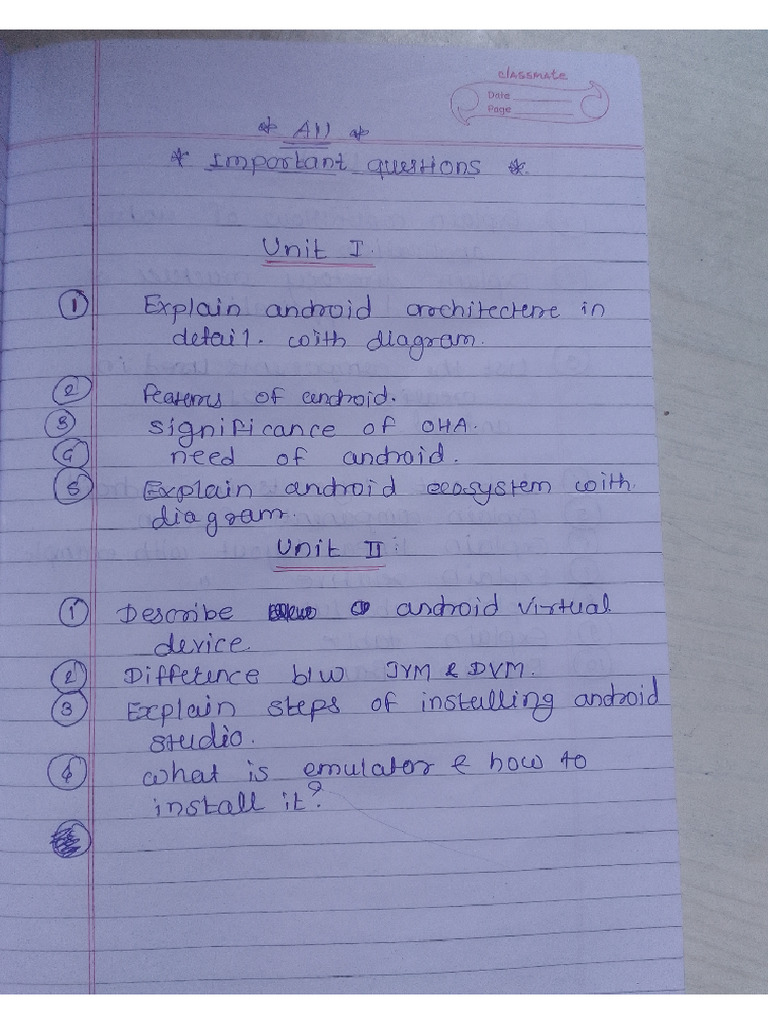 classmate
Date
Page
* All *
* Important questions *
Unit I
① Explain android architecture in
detail. with diagram.
② Features of android.
③ significance of OHA.
④ need of android.
⑤ Explain android ecosystem with
diagram.
Unit II :
① Describe android virtual
device.
② Difference b/w JVM & DVM.
③ Explain steps of installing android
studio.
④ what is emulator & how to
install it?